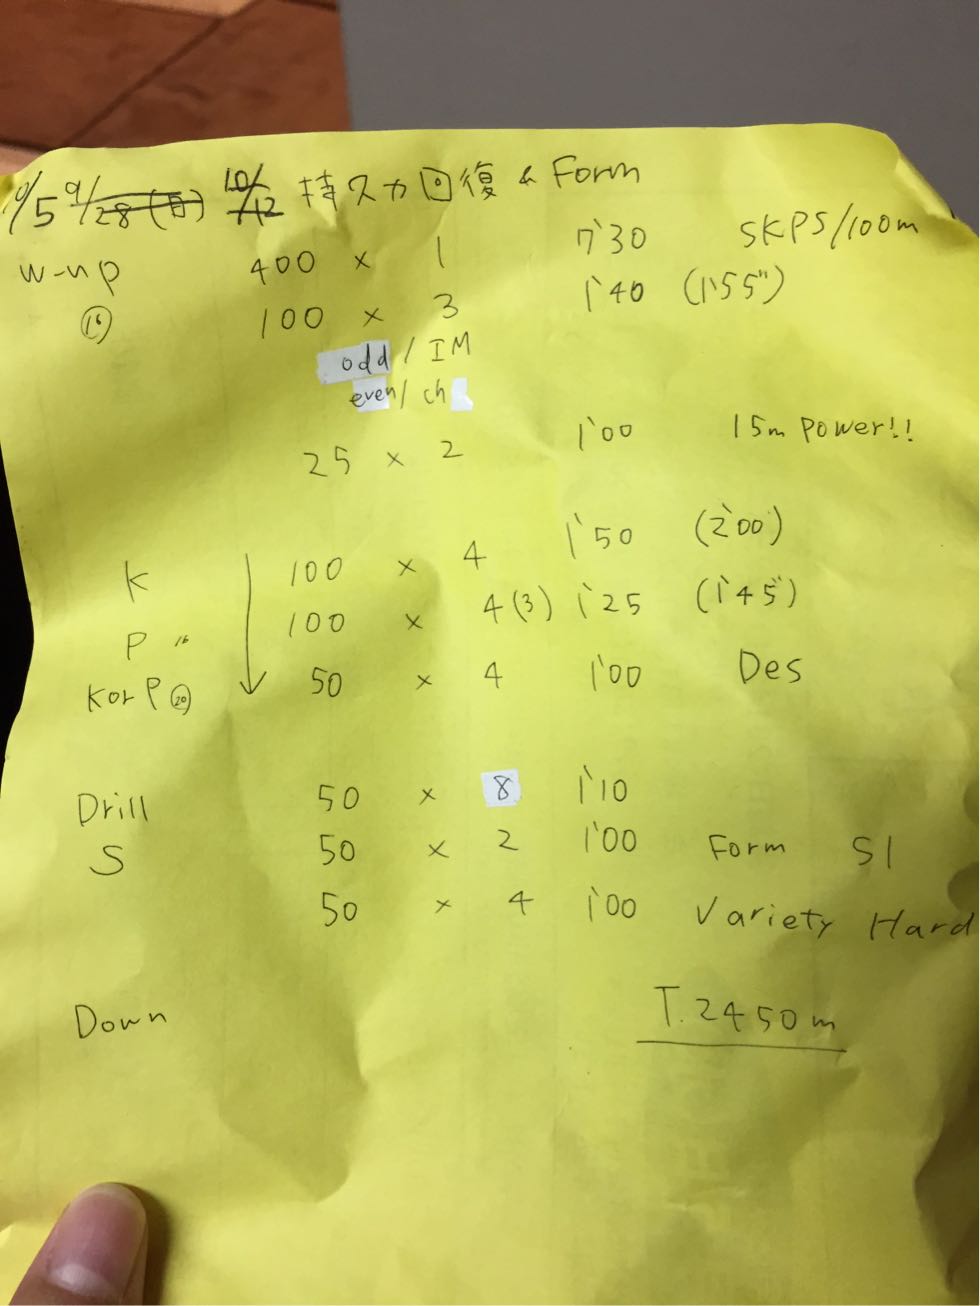 10/5 9/28(日) 10/12 持久力回復 & Form
W-up 400 × 1 7'30 SKPS/100m
⑯ 100 × 3 1'40 (1'55")
odd / IM
even / ch
25 × 2 1'00 15m Power!!
K 100 × 4 1'50 (2'00)
P 16 100 × 4(3) 1'25 (1'45)
K or P ⑳ 50 × 4 1'00 Des
Drill 50 × 8 1'10
S 50 × 2 1'00 Form S1
50 × 4 1'00 Variety Hard
Down T.2450m